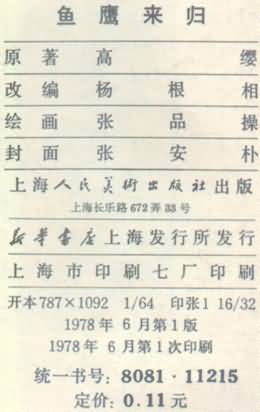 鱼鹰来归
原著 高缨
改编 杨根相
绘画 张品操
封面 张安朴
上海人民美術出版社出版
上海长乐路672弄33号
新華書店上海发行所发行
上海市印刷七厂印刷
开本787×1092 1/64 印张1 16/32
1978年6月第1版
1978年6月第1次印刷
统一书号：8081·11215
定价：0.11元